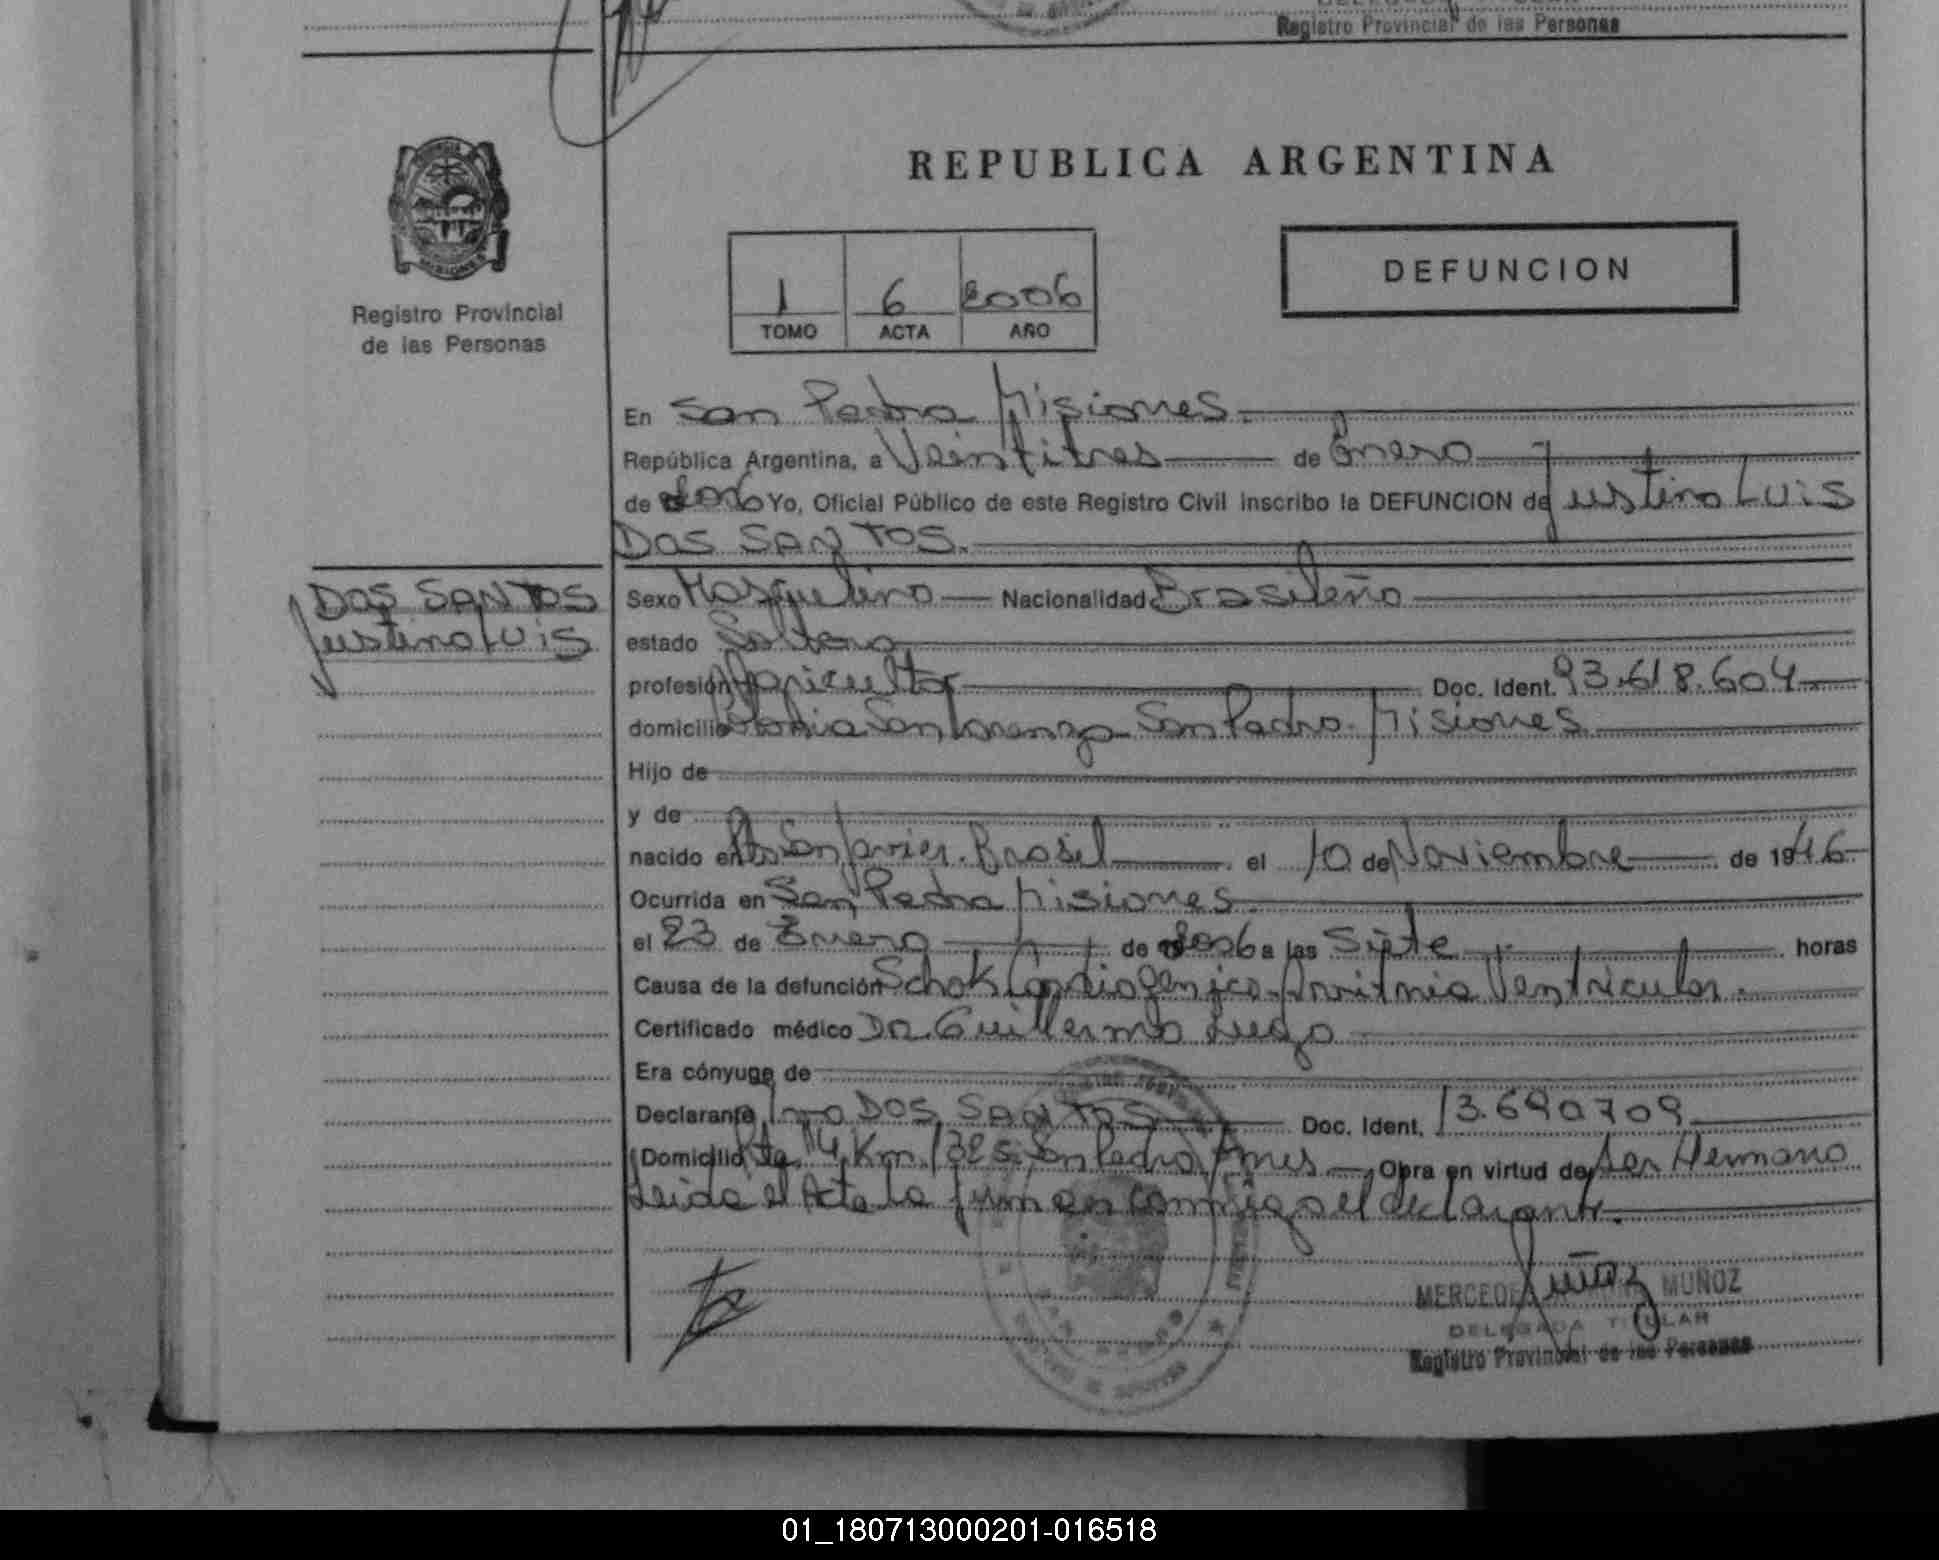 Registro Provincial de las Personas
REPUBLICA ARGENTINA
DEFUNCION
1 6 2006
TOMO ACTA AÑO
Registro Provincial
de las Personas
En San Pedro Misiones.
República Argentina, a Veintitres de Enero
de 2006 Yo, Oficial Público de este Registro Civil inscribo la DEFUNCION de Justino Luis
DOS SANTOS.
DOS SANTOS
Justino Luis
Sexo Masculino Nacionalidad Brasileño
estado Soltero
profesión Agricultor Doc. Ident. 93.618.604
domicilio Colonia San Lorenzo San Pedro. Misiones
Hijo de
y de
nacido en San Javier. Brasil el 10 de Noviembre de 1946
Ocurrida en San Pedro Misiones
el 23 de Enero de 2006 a las Siete horas
Causa de la defunción Schok Cardiogenico. Arritmia Ventricular.
Certificado médico Dr. Guillermo Lugo
Era cónyuge de
Declarante DOS SANTOS Doc. Ident. 13.690709
Domicilio Rta. 14 Km. San Pedro Mnes Obra en virtud de ser Hermano
Leida el Acta la firma conmigo el declarante.
MUÑOZ
DELEGADA TITULAR
Registro Provincial de las Personas
01_180713000201-016518